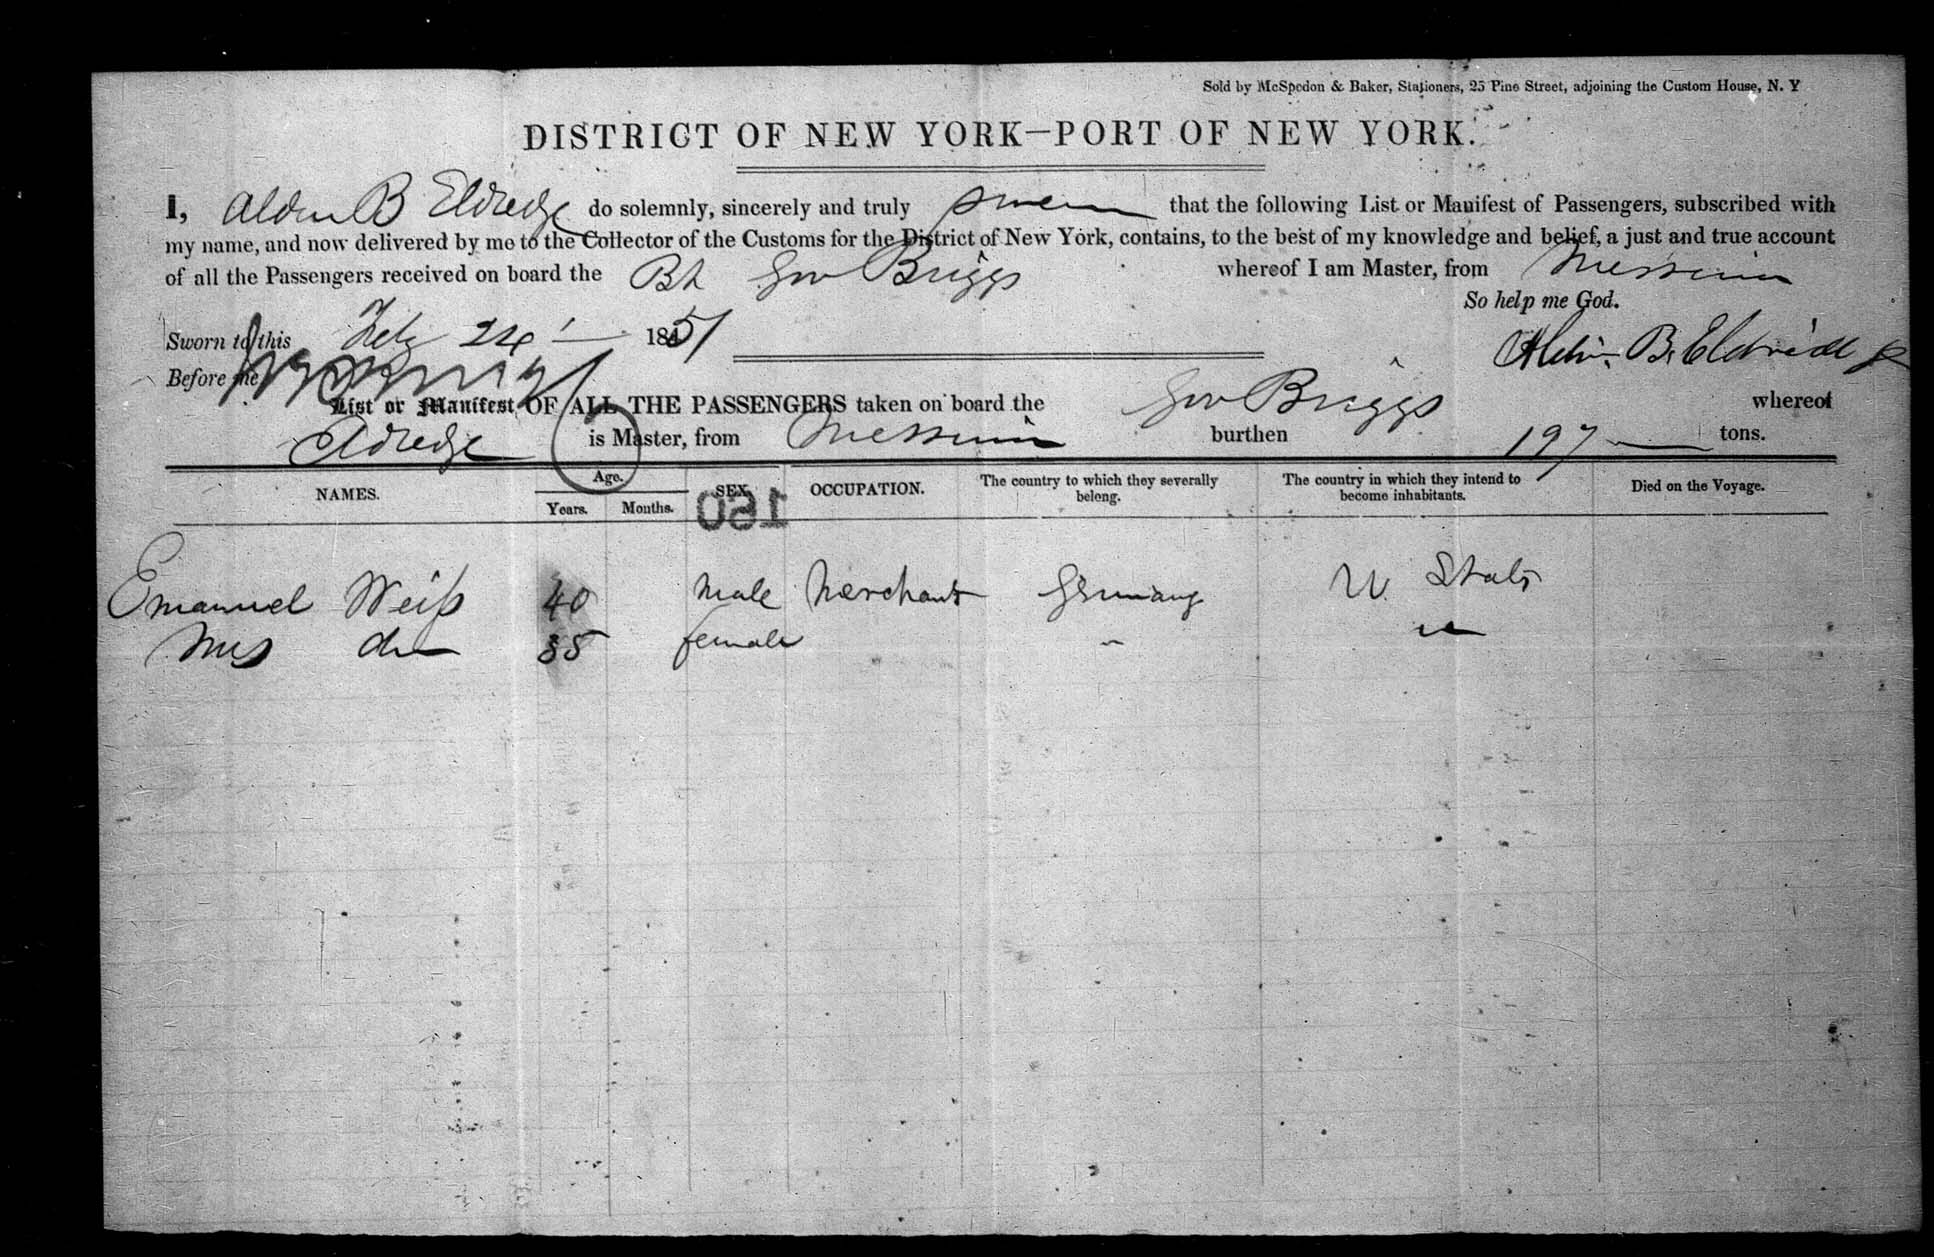 Sold by McSpedon & Baker, Stationers, 25 Pine Street, adjoining the Custom House, N. Y
DISTRICT OF NEW YORK—PORT OF NEW YORK.
I, Alden B Eldredge do solemnly, sincerely and truly swear that the following List or Manifest of Passengers, subscribed with
my name, and now delivered by me to the Collector of the Customs for the District of New York, contains, to the best of my knowledge and belief, a just and true account
of all the Passengers received on board the Gov Briggs whereof I am Master, from Messina
So help me God.
Sworn to this Feby 24 1851
Before me
List or Manifest OF ALL THE PASSENGERS taken on board the Gov Briggs whereof
Eldredge is Master, from Messina burthen 197 tons.
NAMES. Age. Years. Months. SEX OCCUPATION. The country to which they severally belong. The country in which they intend to become inhabitants. Died on the Voyage.
150
Emanuel Weiß 40 Male Merchant Germany U States
Mrs do 35 female " "